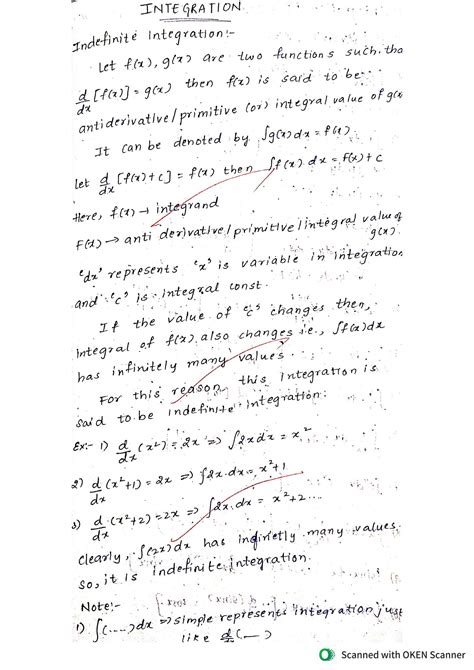 INTEGRATION
Indefinite Integration:-
Let f(x), g(x) are two functions such tha
d/dx [f(x)] = g(x) then f(x) is said to be
antiderivative/primitive (or) integral value of g(x
It can be denoted by ∫g(x)dx = f(x)
let d/dx [F(x)+c] = f(x) then ∫f(x).dx = F(x)+c
Here, f(x) → integrand
F(x) → anti derivative/primitive/integral value of
g(x)
'dx' represents 'x' is variable in integration
and 'c' is integral const.
If the value of 'c' changes then,
integral of f(x) also changes i.e., ∫f(x)dx
has infinitely many values.
For this reason this integration is
said to be indefinite integration.
Ex:- 1) d/dx (x²) = 2x => ∫2xdx = x²
2) d/dx (x²+1) = 2x => ∫2x.dx = x²+1
3) d/dx (x²+2) = 2x => ∫2x.dx = x²+2...
Clearly, ∫(2x)dx has many values
so, it is indefinite integration.
Note:-
1) ∫(....)dx => simple represents integration just
like d/dx (—)
Scanned with OKEN Scanner